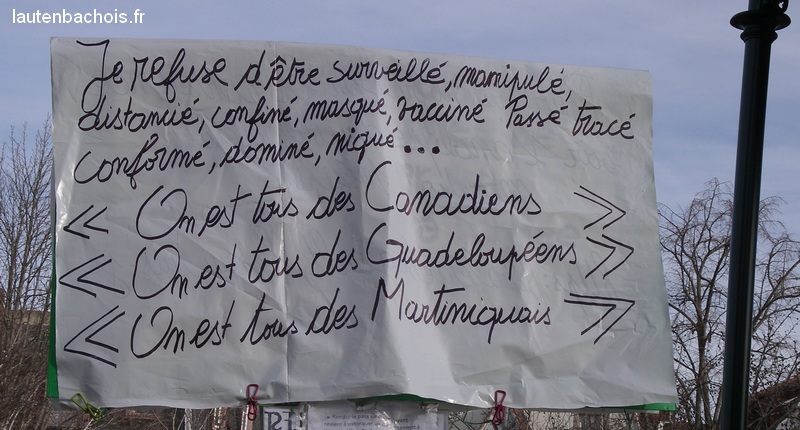 lautenbachois.fr
Je refuse d'être surveillé, manipulé,
distancié, confiné, masqué, vacciné Passé tracé
conformé, dominé, niqué...
<< On est tous des Canadiens >>
<< On est tous des Guadeloupéens >>
<< On est tous des Martiniquais >>